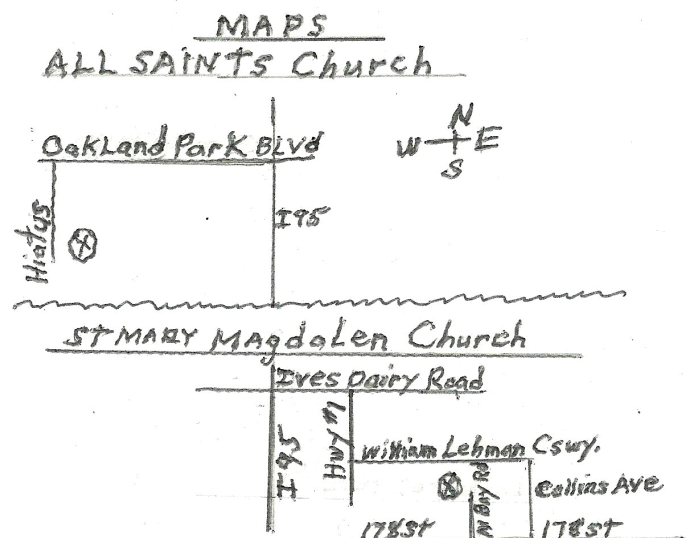 MAPS
ALL SAINTS Church
Oakland Park BLvd
N
W E
S
Hiatus
I95
ST MARY MAgdaLen Church
Ives Dairy Road
I95
Hwy #1
William Lehman Cswy.
N Bay Rd
Collins Ave
178 St
178 St